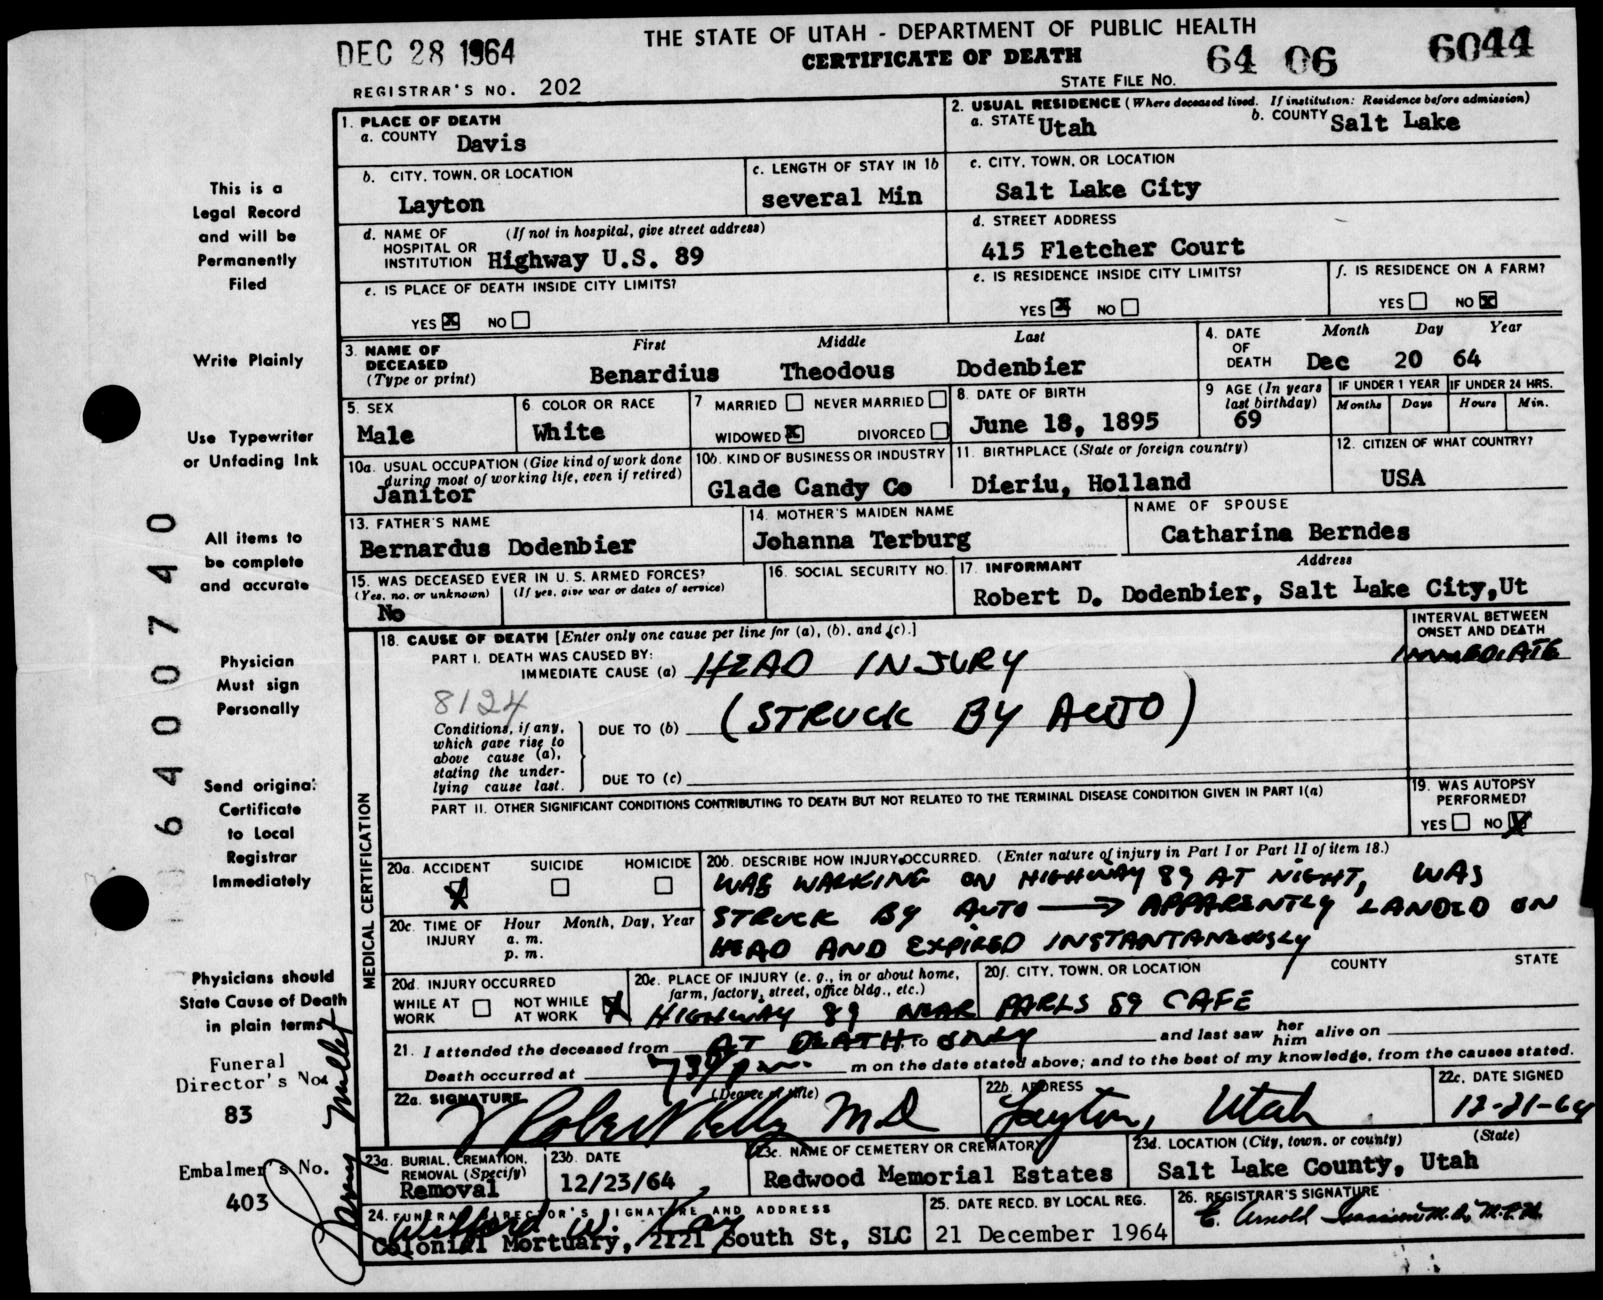 DEC 28 1964
THE STATE OF UTAH - DEPARTMENT OF PUBLIC HEALTH
CERTIFICATE OF DEATH
64 06 6044
STATE FILE NO.
REGISTRAR'S NO. 202
1. PLACE OF DEATH
a. COUNTY Davis
2. USUAL RESIDENCE (Where deceased lived. If institution: Residence before admission)
a. STATE Utah b. COUNTY Salt Lake
b. CITY, TOWN, OR LOCATION
Layton
c. LENGTH OF STAY IN 1b
several Min
c. CITY, TOWN, OR LOCATION
Salt Lake City
d. NAME OF HOSPITAL OR INSTITUTION (If not in hospital, give street address)
Highway U.S. 89
d. STREET ADDRESS
415 Fletcher Court
e. IS PLACE OF DEATH INSIDE CITY LIMITS?
YES X NO
e. IS RESIDENCE INSIDE CITY LIMITS?
YES X NO
f. IS RESIDENCE ON A FARM?
YES NO X
3. NAME OF DECEASED (Type or print)
First Middle Last
Benardius Theodous Dodenbier
4. DATE OF DEATH Month Day Year
Dec 20 64
5. SEX
Male
6 COLOR OR RACE
White
7 MARRIED NEVER MARRIED
WIDOWED X DIVORCED
8. DATE OF BIRTH
June 18, 1895
9 AGE (In years last birthday)
69
IF UNDER 1 YEAR IF UNDER 24 HRS.
Months Days Hours Min.
10a. USUAL OCCUPATION (Give kind of work done during most of working life, even if retired)
Janitor
10b. KIND OF BUSINESS OR INDUSTRY
Glade Candy Co
11. BIRTHPLACE (State or foreign country)
Dieriu, Holland
12. CITIZEN OF WHAT COUNTRY?
USA
13. FATHER'S NAME
Bernardus Dodenbier
14. MOTHER'S MAIDEN NAME
Johanna Terburg
NAME OF SPOUSE
Catharina Berndes
15. WAS DECEASED EVER IN U.S. ARMED FORCES?
(Yes, no. or unknown) (If yes, give war or dates of service)
No
16. SOCIAL SECURITY NO.
17. INFORMANT Address
Robert D. Dodenbier, Salt Lake City,Ut
18. CAUSE OF DEATH [Enter only one cause per line for (a), (b), and (c).]
INTERVAL BETWEEN ONSET AND DEATH
PART I. DEATH WAS CAUSED BY:
IMMEDIATE CAUSE (a) HEAD INJURY IMMEDIATE
8124
Conditions, if any, which gave rise to above cause (a), stating the underlying cause last.
DUE TO (b) (STRUCK BY AUTO)
DUE TO (c)
PART II. OTHER SIGNIFICANT CONDITIONS CONTRIBUTING TO DEATH BUT NOT RELATED TO THE TERMINAL DISEASE CONDITION GIVEN IN PART I(a)
19. WAS AUTOPSY PERFORMED?
YES NO X
MEDICAL CERTIFICATION
20a. ACCIDENT SUICIDE HOMICIDE
X
20b. DESCRIBE HOW INJURY OCCURRED. (Enter nature of injury in Part I or Part II of item 18.)
WAS WALKING ON HIGHWAY 89 AT NIGHT, WAS
STRUCK BY AUTO → APPARENTLY LANDED ON
HEAD AND EXPIRED INSTANTANEOUSLY
20c. TIME OF INJURY Hour a. m. p. m. Month, Day, Year
20d. INJURY OCCURRED
WHILE AT WORK NOT WHILE AT WORK X
20e. PLACE OF INJURY (e. g., in or about home, farm, factory, street, office bldg., etc.)
20f. CITY, TOWN, OR LOCATION COUNTY STATE
HIGHWAY 89 NEAR 89 CAFE
21. I attended the deceased from AT DEATH, to ONLY and last saw her him alive on
Death occurred at m on the date stated above; and to the best of my knowledge, from the causes stated.
22a. SIGNATURE (Degree or title)
Robert Kelly MD
22b. ADDRESS
Layton, Utah
22c. DATE SIGNED
12-21-64
23a. BURIAL, CREMATION, REMOVAL (Specify)
Removal
23b. DATE
12/23/64
23c. NAME OF CEMETERY OR CREMATORY
Redwood Memorial Estates
23d. LOCATION (City, town. or county) (State)
Salt Lake County, Utah
24. FUNERAL DIRECTOR'S SIGNATURE AND ADDRESS
Wilford W. Kay
Colonial Mortuary, 2121 South St, SLC
25. DATE RECD. BY LOCAL REG.
21 December 1964
26. REGISTRAR'S SIGNATURE
This is a
Legal Record
and will be
Permanently
Filed
Write Plainly
Use Typewriter
or Unfading Ink
All items to
be complete
and accurate
Physician
Must sign
Personally
Send original
Certificate
to Local
Registrar
Immediately
Physicians should
State Cause of Death
in plain terms
Funeral
Director's No.
83
Embalmer's No.
403
6400740